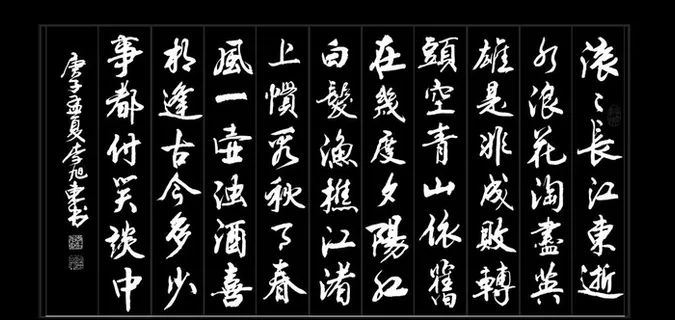 滚々長江東逝
水浪花淘盡英
雄是非成敗轉
頭空青山依舊
在幾度夕陽红
白髮漁樵江渚
上慣看秋月春
風一壺浊酒喜
相逢古今多少
事都付笑談中
庚子孟夏李旭東书